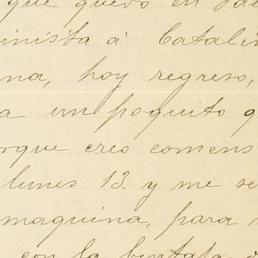 que quedo en
inista á Catalin
na, hoy regreso,
a un poquito q
rque creo comens
lunes 13. y me se
maquina, para
con la ventaja